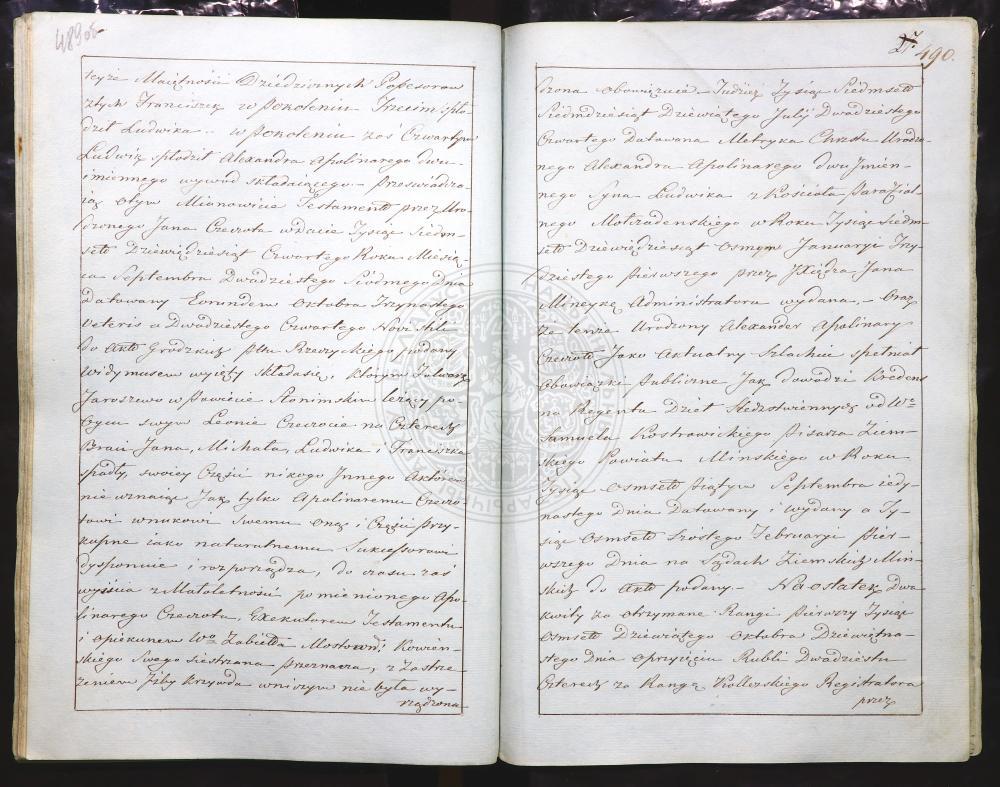 489 об
teyże Maiętności Dziedzicznych Possesorow
złych Franciszeq w Pokoleniu Trzecim spło-
dził Ludwika .. w Pokoleniu zaś Czwartym
Ludwik spłodził Alexandra Apolinarego dwu-
imiennego wywod składaiącego – Przeświadcza-
ią o tym Mianowicie Testament przez Uro-
dzonego Jana Czeczota w dacie Tysiąc Siedm-
set Dziewiędziesiąt Czwartego Roku Miesią-
ca Septembra Dwudziestego Siódmego Dnia
Datowany Eorundem Oktobra Trzynastego
Veteris a Dwudziestego Czwartego Novi Stili
do Akt Grodzkich Pttu Rzeczyckiego podany
Widymusem wyięty składasię, ktorym Folwark
Jaroszewo w Powiecie Słonimskim leżący po
Oycu swym Leonie Czeczocie na Czterech
Braci Jana, Michała, Ludwika i Franciszka
spadły, swoiey Części nikogo Innego Aktorem
nie uznaiąc Jak tylko Apolinaremu Czeczo-
towi wnukowi Swemu onąż i Części Przy-
kupne iako naturalnemu Sukcessorowi
dysponuie i rozporządza, do czasu zaś
wyiścia z Małoletności pomienionego Apo-
linarego Czeczota, Exekutorem Testamentu
i Opiekunem Wo Zabiełłą Mostown: Kowień-
skiego Swego Siestrzana Przeznacza, z Zastrze-
żeniem Żiby krzywda wniczym nie była wy-
rządzona
27
490.
dzona obowiązuie – Tudzież Tysiąc Siedmset
Siedmdziesiąt Dziewiątego Julij Dwudziestego
Czwartego Datowana Metryka Chrztu Urodzo-
nego Alexandra Apolinarego dwu Jmien-
nego Syna Ludwika z Kościoła Parafial-
nego Mołczadenskiego w Roku Tysiąc Siedm-
set Dziewiędziesiąt Osmym Januaryi Trzy-
dziestego Pierwszego przez Xiędza Jana
Mineykę Administratora wydana, – Oraz
że tenże Urodzony Alexander Apolinary
Czeczott Jako Aktualny Szlachcic spełniał
Obowiązki Publiczne Jak dowodzi Kredens
na Regenta Dzieł Sledztwiennych od Wo
Samuela Kostrowickiego Pisarza Ziem-
skiego Powiatu Mińskiego w Roku
Tysiąc Osmset Piątym Septembra iedy-
nastego Dnia Datowany i wydany a Ty-
siąc Osmset Szóstego Februaryi Pier-
wszego Dnia na Sądach Ziemskich Miń-
skich do Akt podany – Na ostatek Dwa
kwity za otrzymane Rangi pierwszy Tysiąc
Osmset Dziewiątego Oktobra Dziewiętna-
stego Dnia oprzyięciu Rubli Dwudziestu
Czterech za Rangę Kollezskiego Registratora
przez